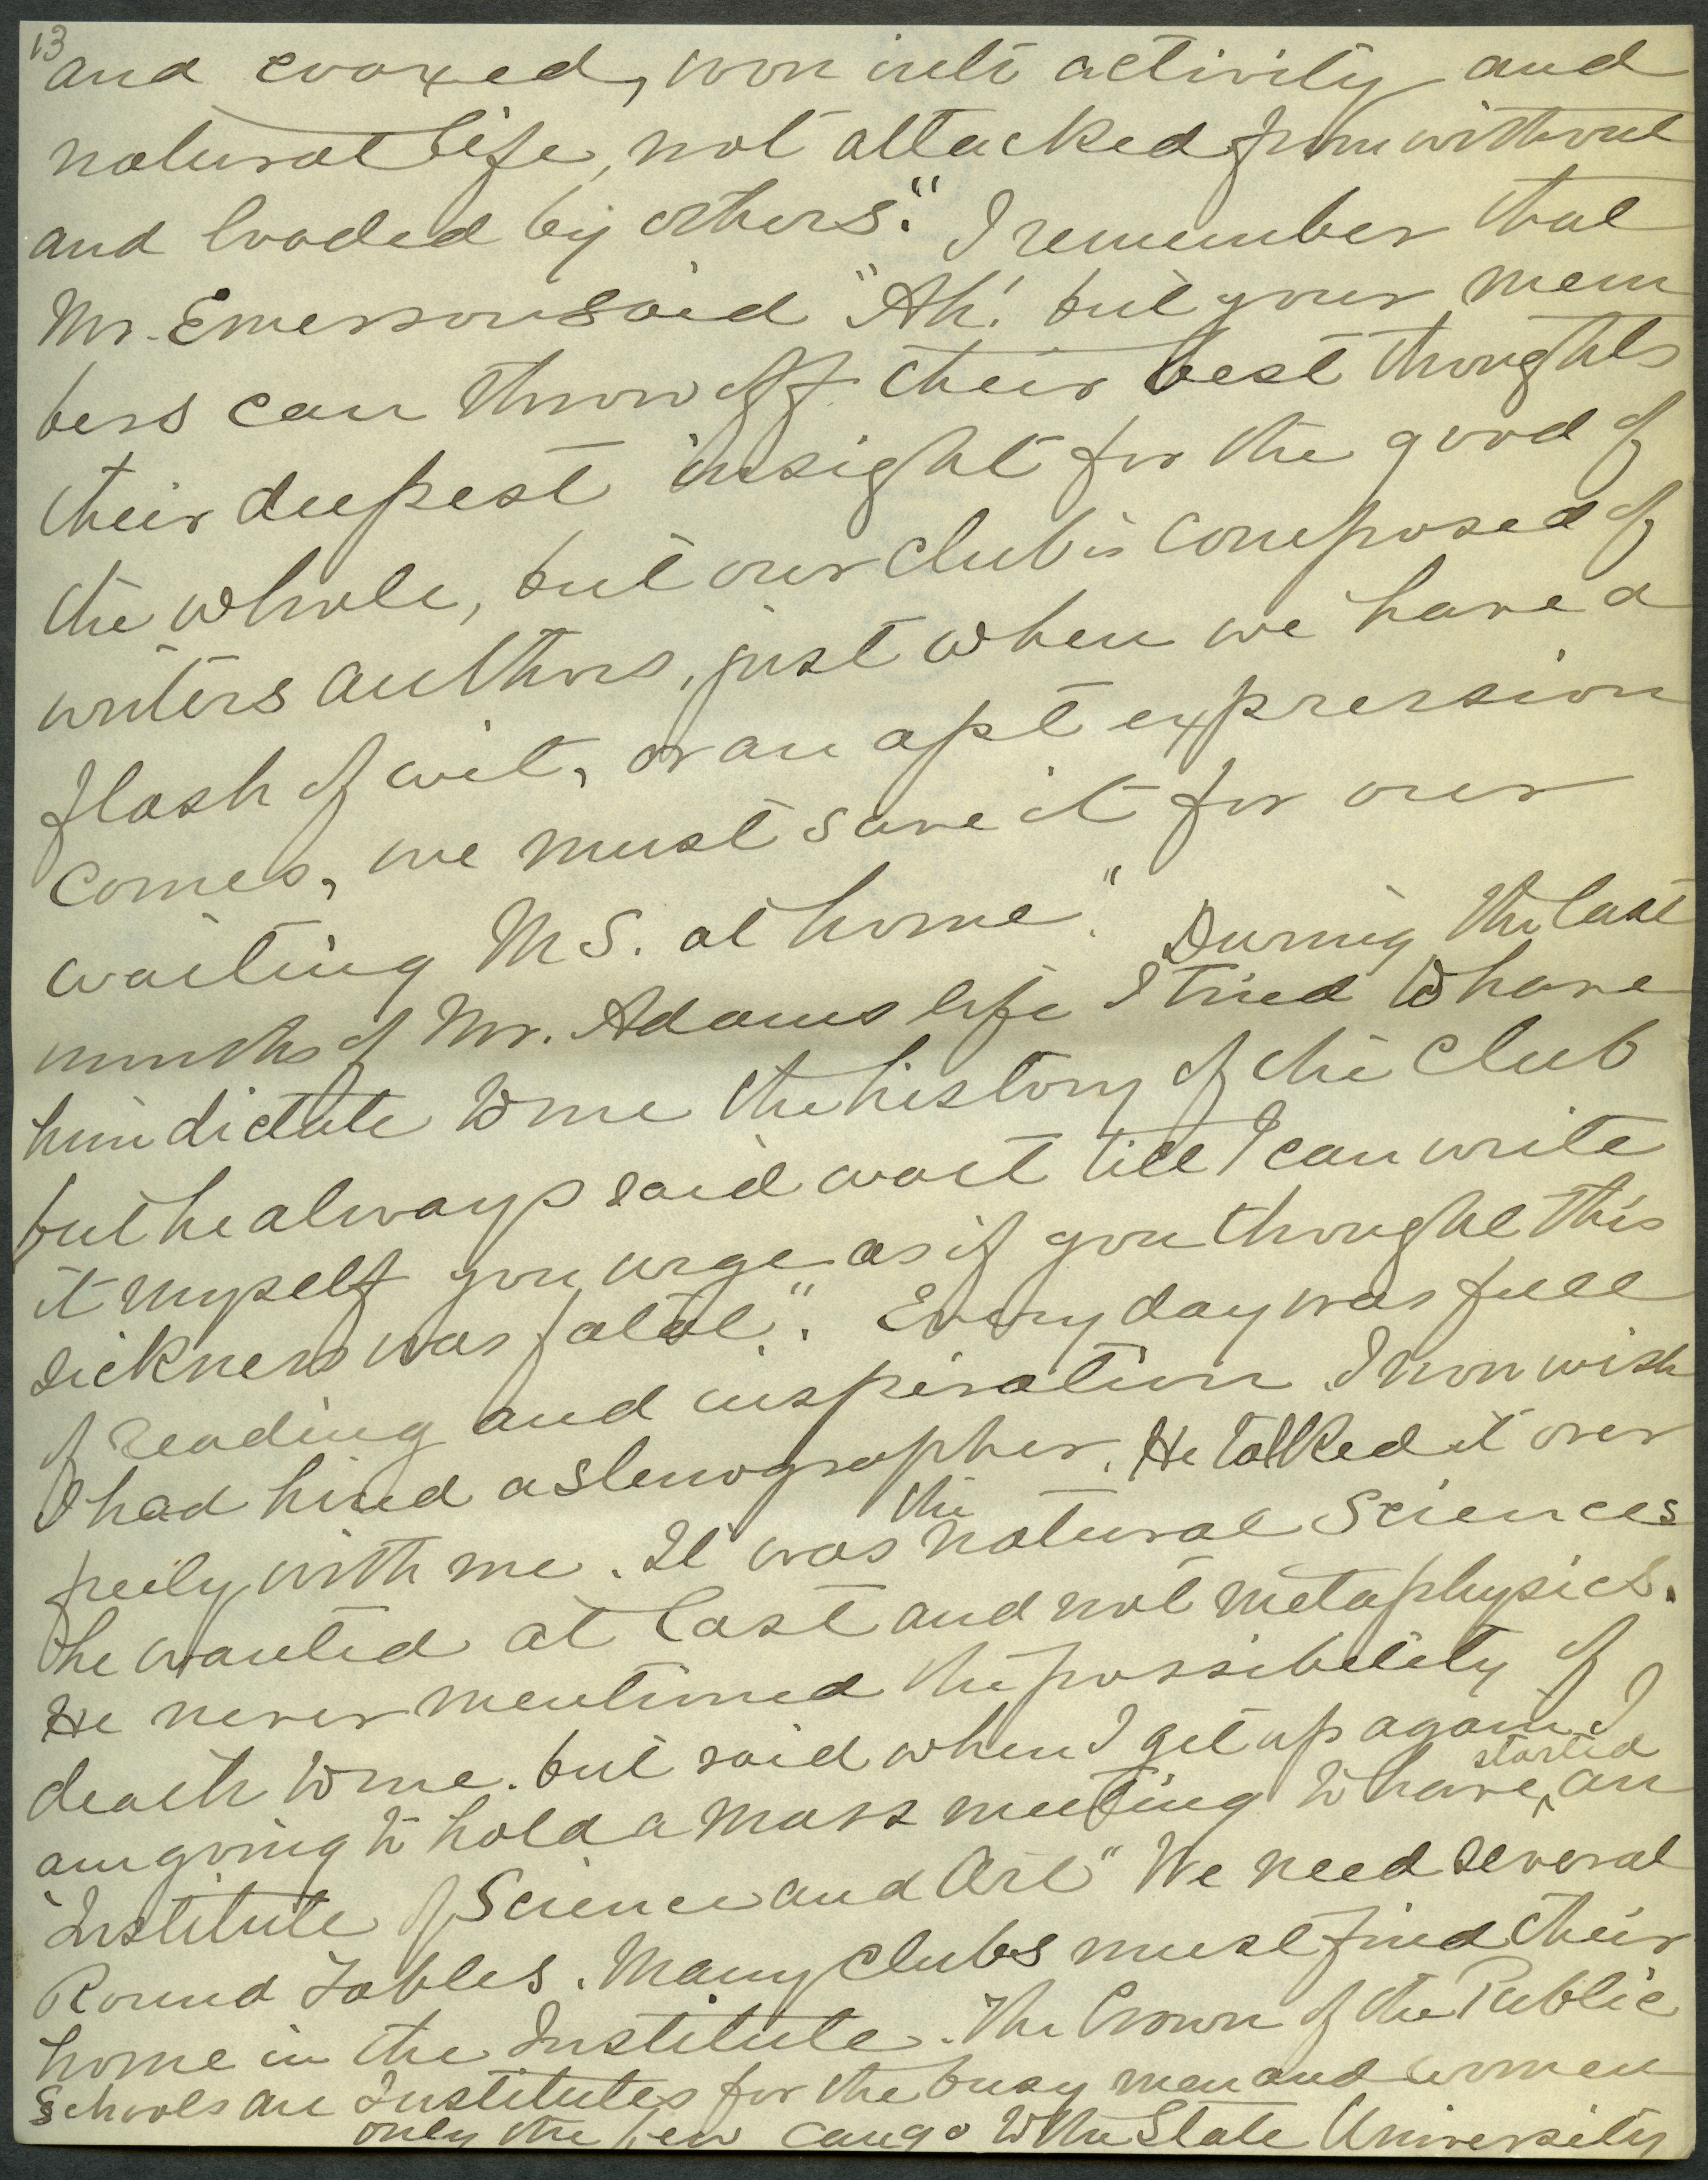 13
and coaxed, won into activity and
natural life, not attacked from without
and loaded by others." I remember that
Mr. Emerson said "Ah! but your mem
bers can throw off their best thoughts
their deepest insight for the good of
the whole, but our club is composed of
writers authors, just when we have a
flash of wit, or an apt expression
comes, we must save it for our
waiting MS. at home." During the last
months of Mr. Adams life I tried to have
him dictate to me the history of the Club
but he always said wait till I can write
it myself you urge as if you thought this
sickness was fatal." Every day was full
of reading and inspiration I now wish
I had hired a stenographer. He talked it over
freely with me. It was the natural Sciences
he wanted at last and not metaphysics.
He never mentioned the possibility of
death to me. but said when I get up again I
am going to hold a mass meeting to have started an
"Institute of Science and Art" We need several
Round Tables. Many clubs must find their
home in the Institute. The Crown of the Public
Schools are Institutes for the busy men and women
only the few can go to the State University